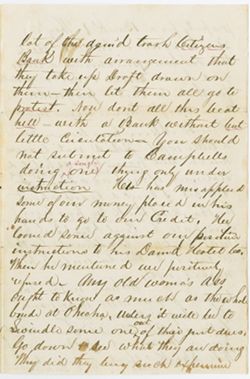 lot of this damd trash Citizens
Bank with arrangement that
they take up Draft drawn on
them — then let them all go to
protest. Now dont all this beat
hell — with a Bank without but
little Circulation — You should
not submit to Campbells
doing a single one thing only under
instruction He has misapplied
some of our money placed in his
hands to go to our Credit. He
loaned some against our positive
instructions to his Damd Hotel Co.
When he mentioned we positively
refused. Any old woman's Ass
ought to know as much as the whole
at Omaha, unless it will be to
swindle some one out of their
Go down & see what they are doing
Why did they bring such expensive